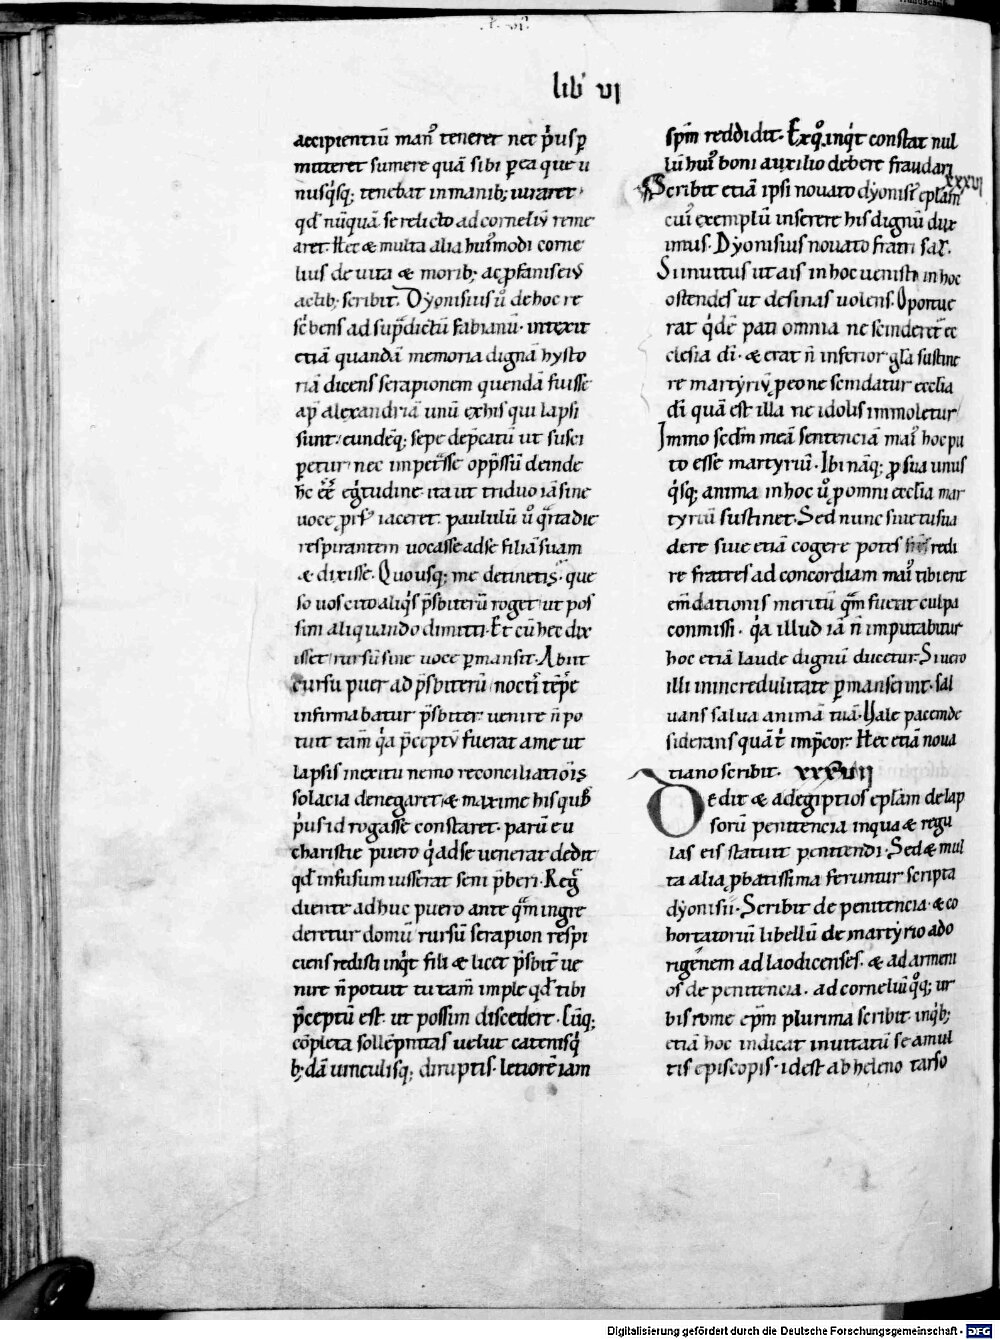 lib' vi
accipientiū man᷒ teneret nec p͛us ꝑ
mitteret sumere quā sibi ꝑ ea que u
nusq͛sq; tenebat in manib; iuraret
qd nūquā se relicto ad corneliū reme
aret. Hec & multa alia hui᷒modi corne
lius de uita & morib; ac ꝓfanis ei᷒
actib; scribit. Dyonisius ū de hoc re
sc͛bens ad sup͛dictū fabianū. intexit
etiā quandā memoria dignā hysto
riā dicens serapionem quendā fuisse
ap̄ alexandriā unū ex his qui lapsi
sunt. eundēq; sepe dep͛catū ut susci
ꝑetur nec impet͛sse opp͛ssū deinde
h̄c ēē eg͛tudine. ita ut triduo iā sine
uoce iaceret. paululū ū q͛rta die
respirantem uocasse ad se filiā suam
& dixisse. Quousq; me detinetis. que
so uos cito aliq͛s p͛sbiterū roget ut pos
sim aliquando dimitti. Et cū hec dix
isset rursū sine uoce ꝑmansit. Abiit
cursu puer ad p͛sbiterū noctī tēp͛e
infirmabatur p͛sbiter. uenire n̄ po
tuit tam̄ q͛a p͛ceptū fuerat a me ut
lapsis in exitu nemo reconciliatiōis
solacia denegaret & maxime his quib᷒
p͛us id rogasse constaret. parū eu
charistie puero q͛ ad se uenerat dedit
qd infusum iusserat seni p͛beri. Reg͛
diente adhuc puero ante q͛m ingre
deretur domū rursū serapion respi
ciens redisti inq͛t fili & licet p͛sbit͛ ue
nire n̄ potuit tu tam̄ imple qd tibi
p͛ceptū est. ut possim discedere. Cūq;
cōpleta sollēpnitas uelut catenis q͛
b;dā uinculisq; diruptis. letiorē iam
sp̄m reddidit. Ex q͛ inq͛t constat nul
lū hui᷒ boni auxilio debere fraudari
xxxvi
Scribit etiā ipsi nouato dyonisi᷒ epl̄am
cui᷒ exemplū inserere his dignū dux
imus. Dyonisius nouato fratri sal̄.
Si inuitus ut ais in hoc uenisti in hoc
ostendes ut desinas uolens. Oportue
rat q͛dē pati omnia ne scinderet͛ ec
clesia dī. & erat n̄ inferior gl̄a sustine
re martyriū, pe one scindatur ecclia
dī quā est illa ne idolis immoletur
Immo scd̄m meā sentenciā mai᷒ hoc pu
to esse martyriū. Ibi nāq; ꝓ sua unus
q͛sq; anima in hoc ū ꝓ omni ecclia mar
tyriū sustinet. Sed nunc siue tu sua
dere siue etiā cogere potes redi
re fratres ad concordiam mai᷒ tibi erit
em̄dationis meritū q͛m fuerat culpa
conmissi. q͛a illud iā n̄ imputabitur
hoc etiā laude dignū ducetur. Si uero
illi in incredulitate ꝑmanserint. sal
uans salua animā tuā. Uale pacem de
siderans quāt͛ imp͛cor. Hec etiā noua
tiano scribit. xxxvii
Dedit & ad egiptios epl̄am de lap
sorū penitencia in qua & regu
las eis statuit penitendi. Sed & mul
ta alia ꝓbatissima feruntur scripta
dyonisii. Scribit de penitencia. & co
hortatoriū libellū de martyrio ad o
rigenem ad laodicenses. & ad armeni
os de penitencia. ad corneliū q͛q; ur
bis rome ep̄m plurima scribit. in q͛b;
etiā hoc indicat inuitatū se a mul
tis episcopis. id est ab heleno tarso
Digitalisierung gefördert durch die Deutsche Forschungsgemeinschaft - DFG